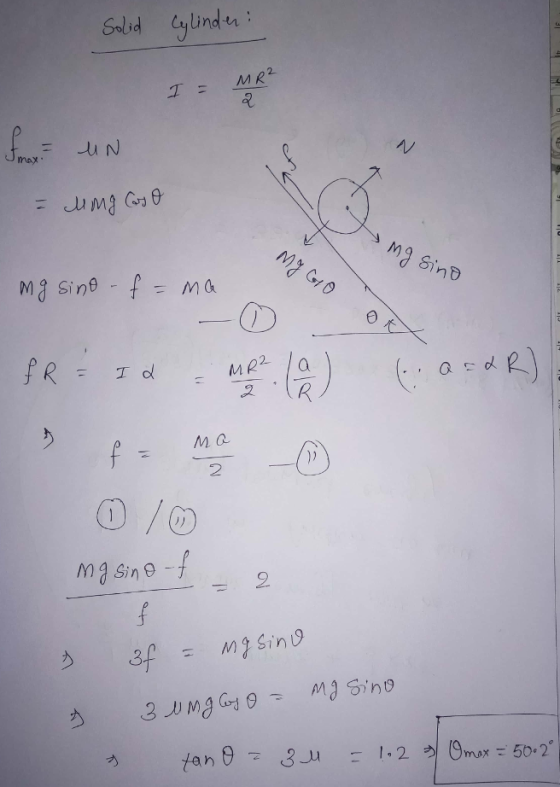 Solid Cylinder:
I = MR²/2
f max. = μN
= μmg Cosθ
f
N
Mg Cosθ
Mg Sinθ
θ
Mg sinθ - f = Ma
— (I)
fR = Iα = MR²/2 · (a/R) (∵ a = αR)
⇒ f = Ma/2 — (II)
(I) / (II)
(Mg sinθ - f)/f = 2
⇒ 3f = Mg Sinθ
⇒ 3 μmg Cosθ = Mg Sinθ
⇒ tanθ = 3μ = 1.2 ⇒ θmax = 50.2°